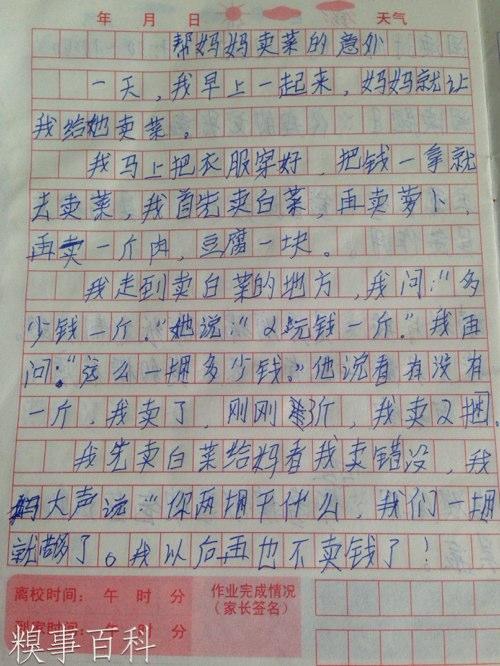 年 月 日 天气
帮妈妈卖菜的意外
一天,我早上一起来,妈妈就让
我给她卖菜。
我马上把衣服穿好,把钱一拿就
去卖菜,我首先卖白菜,再卖萝卜,
再卖一斤肉,豆腐一块。
我走到卖白菜的地方,我问:“多
少钱一斤。”她说:“2玩钱一斤。”我再
问:“这么一捆多少钱。”他说看有没有
一斤,我卖了,刚刚3斤,我卖2捆。
我先卖白菜给妈看我卖错没,我
妈大声说:“你两捆干什么,我们一捆
就够了。我以后再也不卖钱了!
离校时间: 午 时 分
到家时间: 午 时 分
作业完成情况
(家长签名)
糗事百科